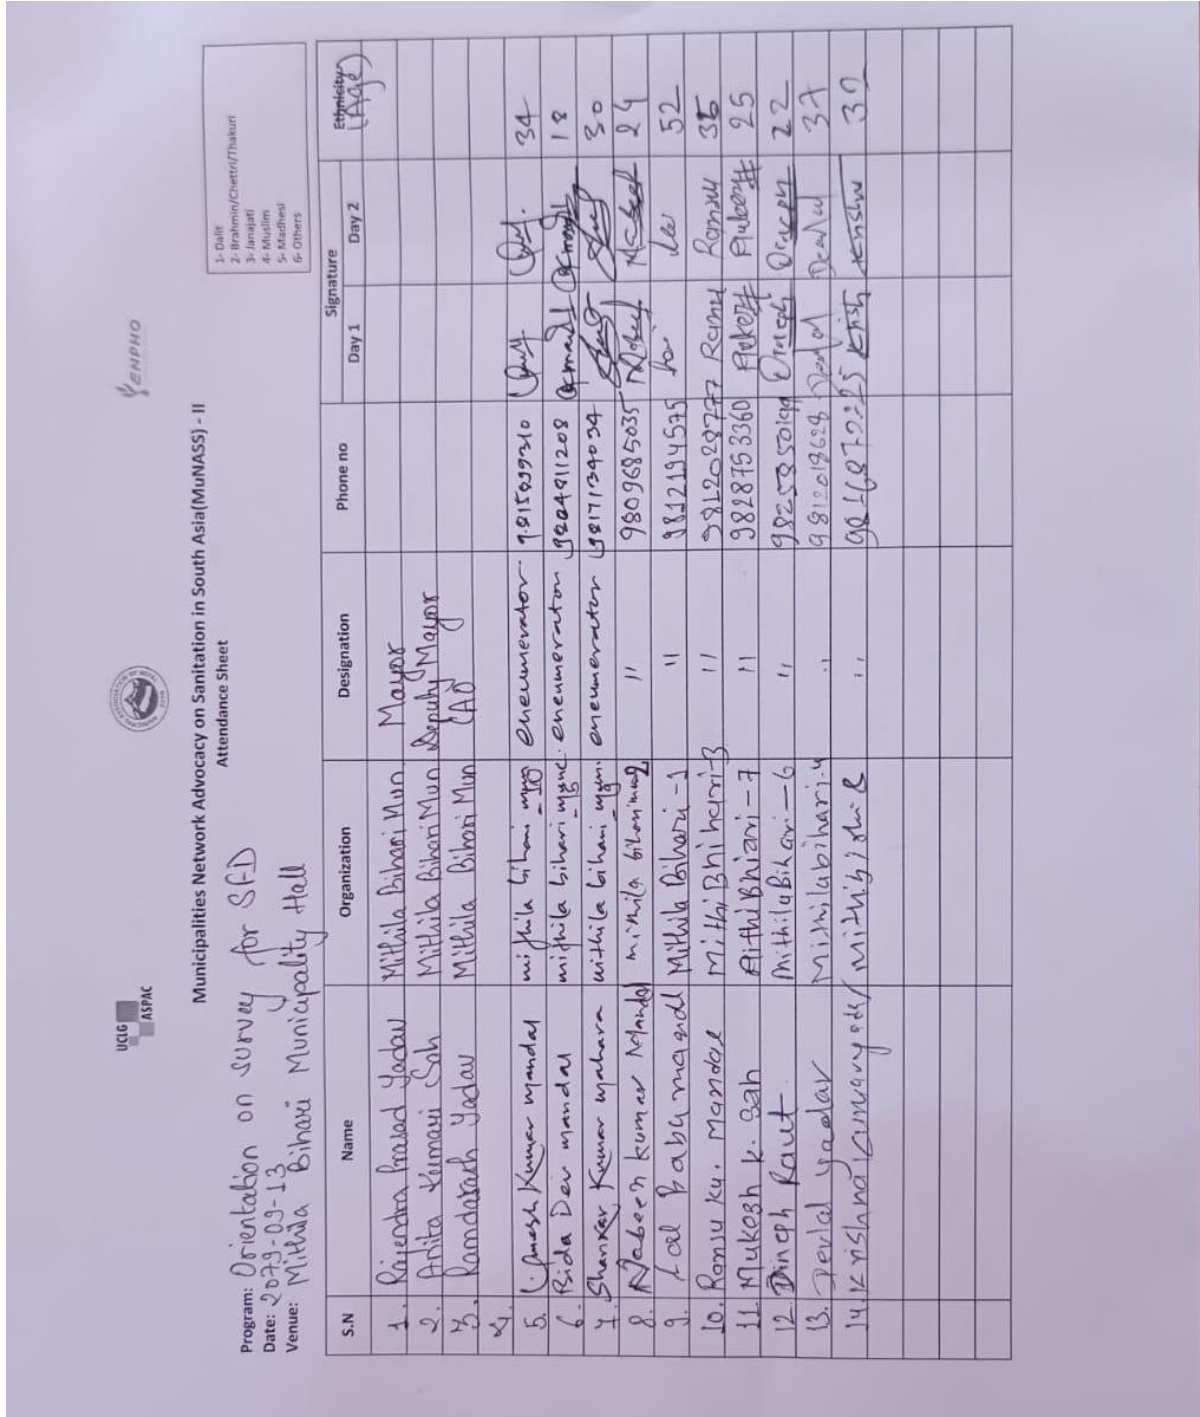 UCLG
ASPAC
MUNICIPAL ASSOCIATION OF NEPAL
ENPHO
Municipalities Network Advocacy on Sanitation in South Asia(MuNASS) - II
Attendance Sheet
Program: Orientation on survey for SFD
Date: 2079-09-13
Venue: Mithila Bihari Municipality Hall
1- Dalit
2- Brahmin/Chettri/Thakuri
3- Janajati
4- Muslim
5- Madhesi
6- Others
S.N Name Organization Designation Phone no Signature Ethnicity
Day 1 Day 2 (Age)
1. Rajendra Prasad Yadav Mithila Bihari Mun. Mayor
2. Anita Kumari Sah Mithila Bihari Mun Deputy Mayor
3. Ramdarash Yadav Mithila Bihari Mun CAO
4.
5. Umesh Kumar mandal mithila bihari -10 enenumerator 9815899310 34
6. Bida Dev mandal mithila bihari enenumerator 9804811208 18
7. Shankar Kumar mahara mithila bihari enenumerator 9817134034 30
8. Nabeen kumar Mandal mithila bihari 2 " 9809685035 24
9. Lal Babu mandl Mithila Bihari -1 " 9812194575 52
10. Ramsu Ku. Mandal Mithi Bhihari-3 " 9812028777 Ramsu 35
11. Mukesh K. Sah MithiBhiari-7 " 9828753360 25
12. Dinesh Raut. MithiluBihari-6 " 22
13. Devlal yadav Mithilabihari-4 " 9812018628 37
14. Krishna Kumar yadav " 32